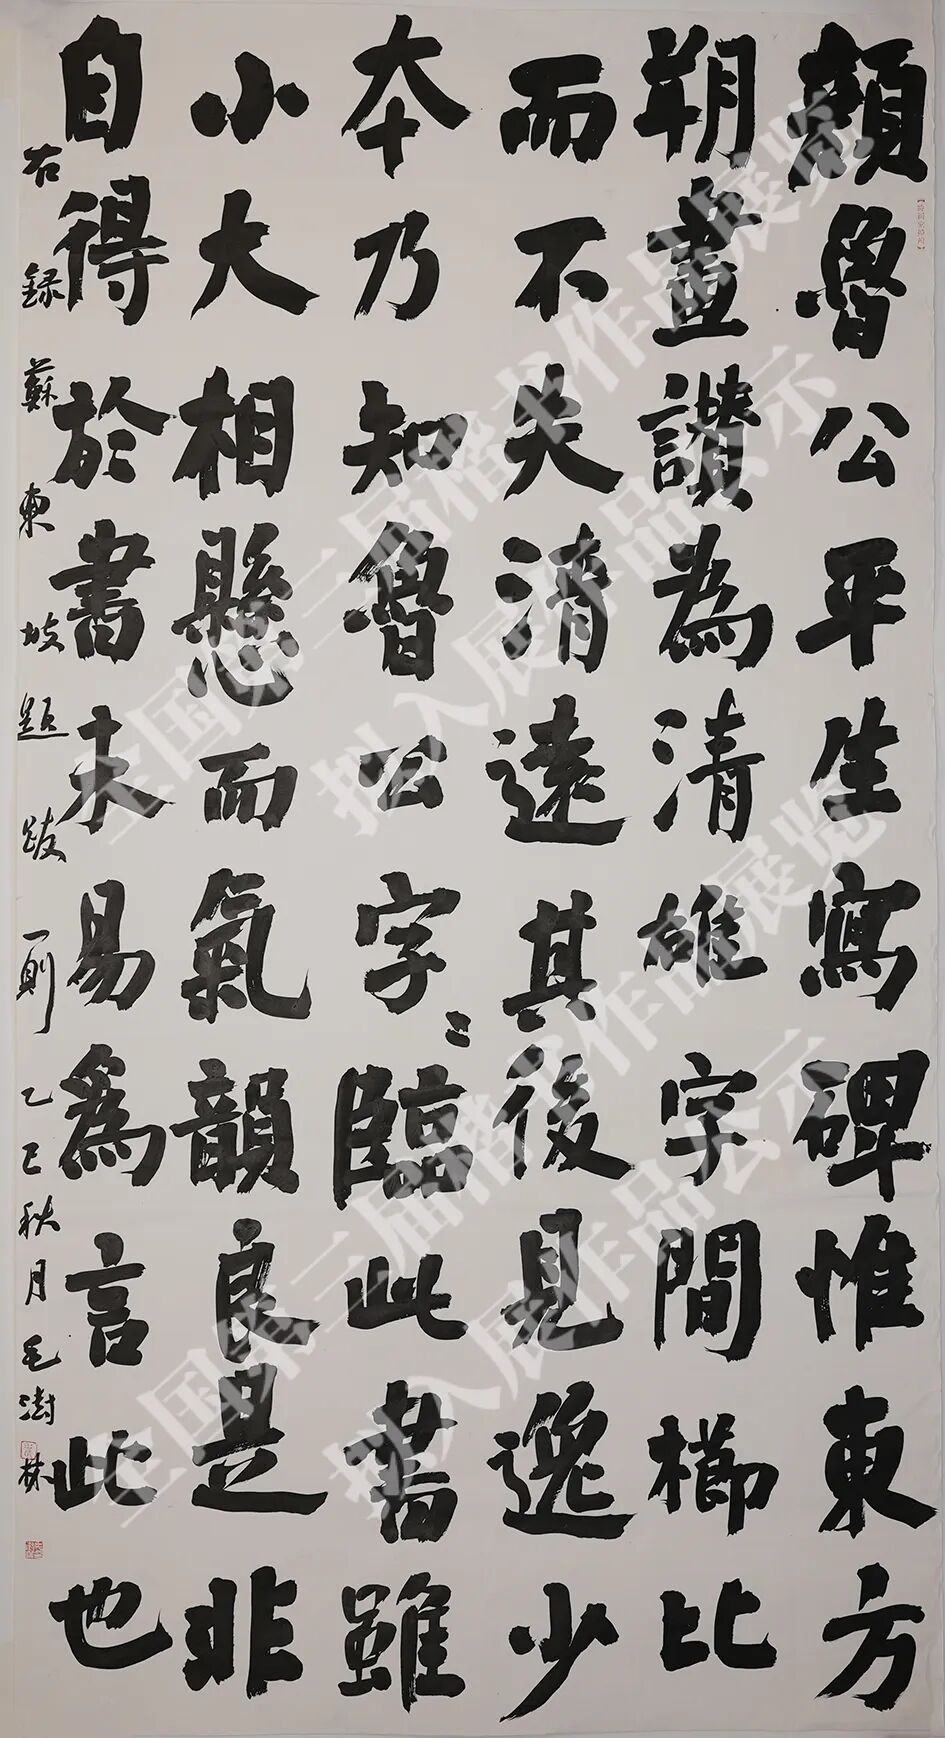 顏魯公平生寫碑惟東方
朔畫讚為清雄字間櫛比
而不失清遠其後見逸少
本乃知魯公字〻臨此書雖
小大相懸而氣韻良是非
自得於書未易爲言此也
右錄蘇東坡題跋一則乙巳秋月毛澍林
全国第三届楷书作品展览
拟入展作品公示
全国第三届楷书作品展览
拟入展作品公示